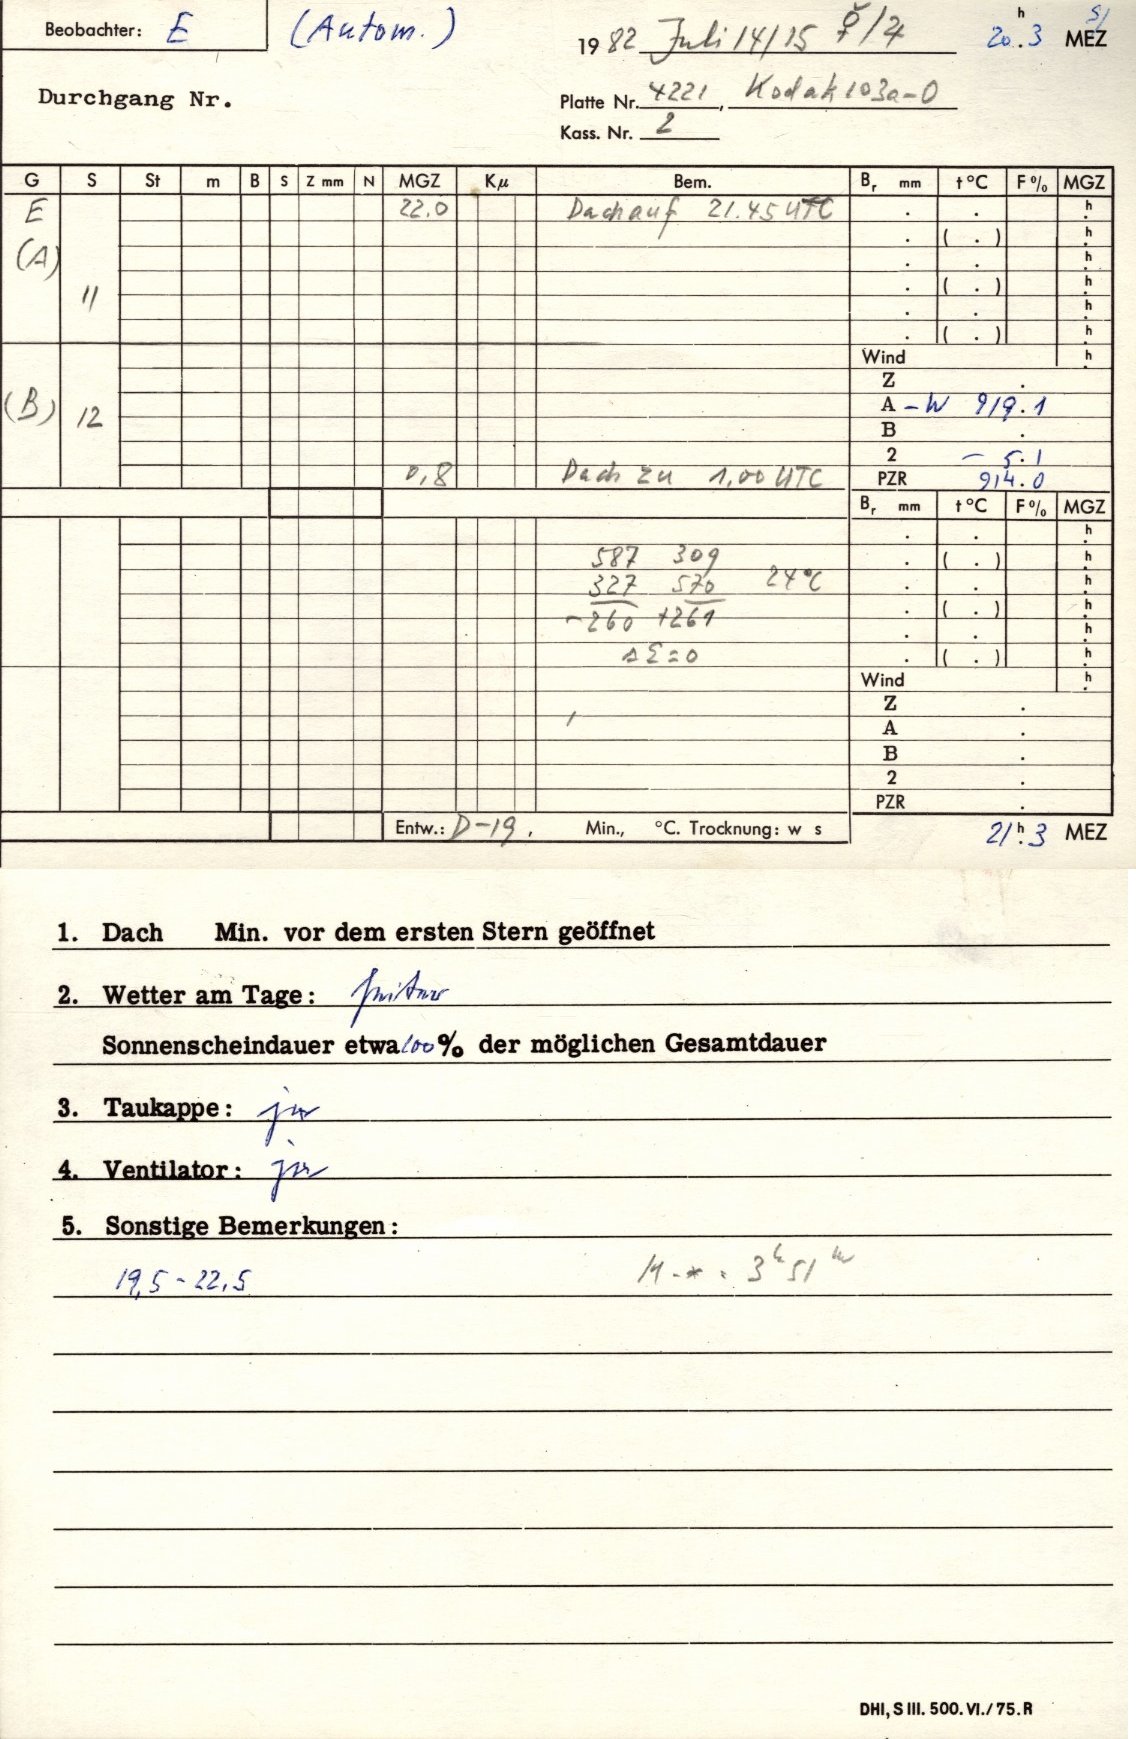 Beobachter: E (Autom.) 1982 Juli 14/15 ☿/♃ 20.ʰ3 MEZ
Durchgang Nr. Platte Nr. 4221, Kodak 103a-O
Kass. Nr. 2
G S St m B S Z mm N MGZ Kμ Bem. Bᵣ mm t°C F% MGZ
E 22.0 Dach auf 21.45 UTC . . h
. ( . ) h
(A) . . h
11 . ( . ) h
. . h
. ( . ) h
Wind h
Z .
(B) 12 A -W 919.1
B .
2 - 5.1
0,8 Dach zu 1,00 UTC PZR 914.0
Bᵣ mm t°C F% MGZ
. . h
587 309 . ( . ) h
327 570 24°C . . h
-260 +261 . ( . ) h
. . h
ΔΣ=0 . ( . ) h
Wind h
Z .
A .
B .
2 .
PZR .
Entw.: D-19, Min., °C. Trocknung: w s 21.ʰ3 MEZ
1. Dach Min. vor dem ersten Stern geöffnet
2. Wetter am Tage: heiter
Sonnenscheindauer etwa 100% der möglichen Gesamtdauer
3. Taukappe: ja
4. Ventilator: ja
5. Sonstige Bemerkungen:
19,5 - 22,5 M.-*. 3ʰ51ᵐ
DHI, S III. 500. VI. / 75. R